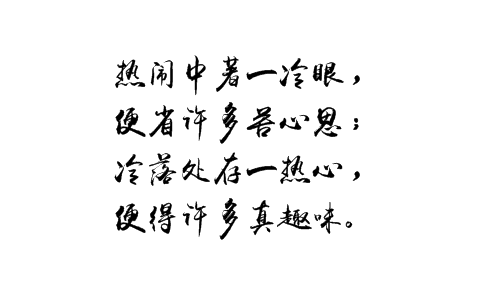 热闹中著一冷眼，
便省许多苦心思；
冷落处存一热心，
便得许多真趣味。